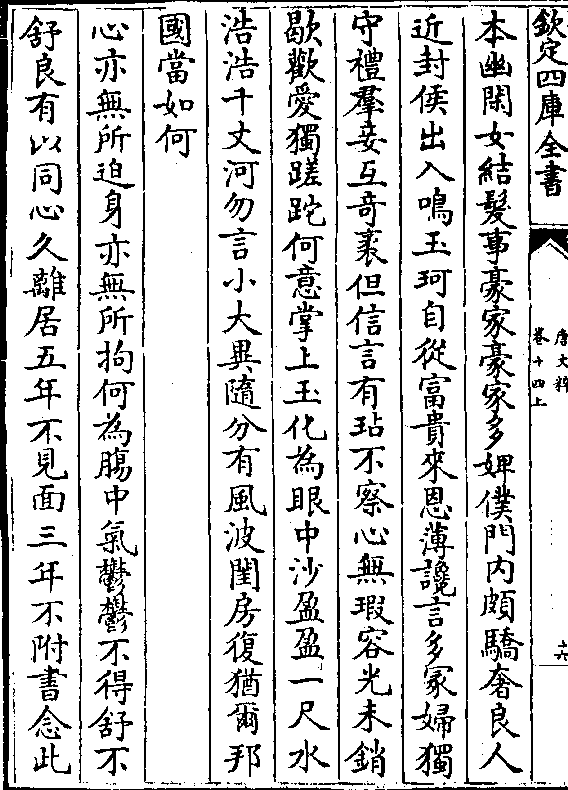 欽定四庫全書
唐文粹
卷十四上
十六
本幽閑女結髮事豪家豪家多婢僕門内頗驕奢良人
近封侯出入鳴玉珂自從富貴來恩薄讒言多冡婦獨
守禮羣妾互奇衺但信言有玷不察心無瑕容光未銷
歇歡愛獨蹉跎何意掌上玉化為眼中沙盈盈一尺水
浩浩千丈河勿言小大異隨分有風波閨房復猶爾邦
國當如何
心亦無所迫身亦無所拘何為腸中氣鬱鬱不得舒不
舒良有以同心久離居五年不見面三年不附書念此